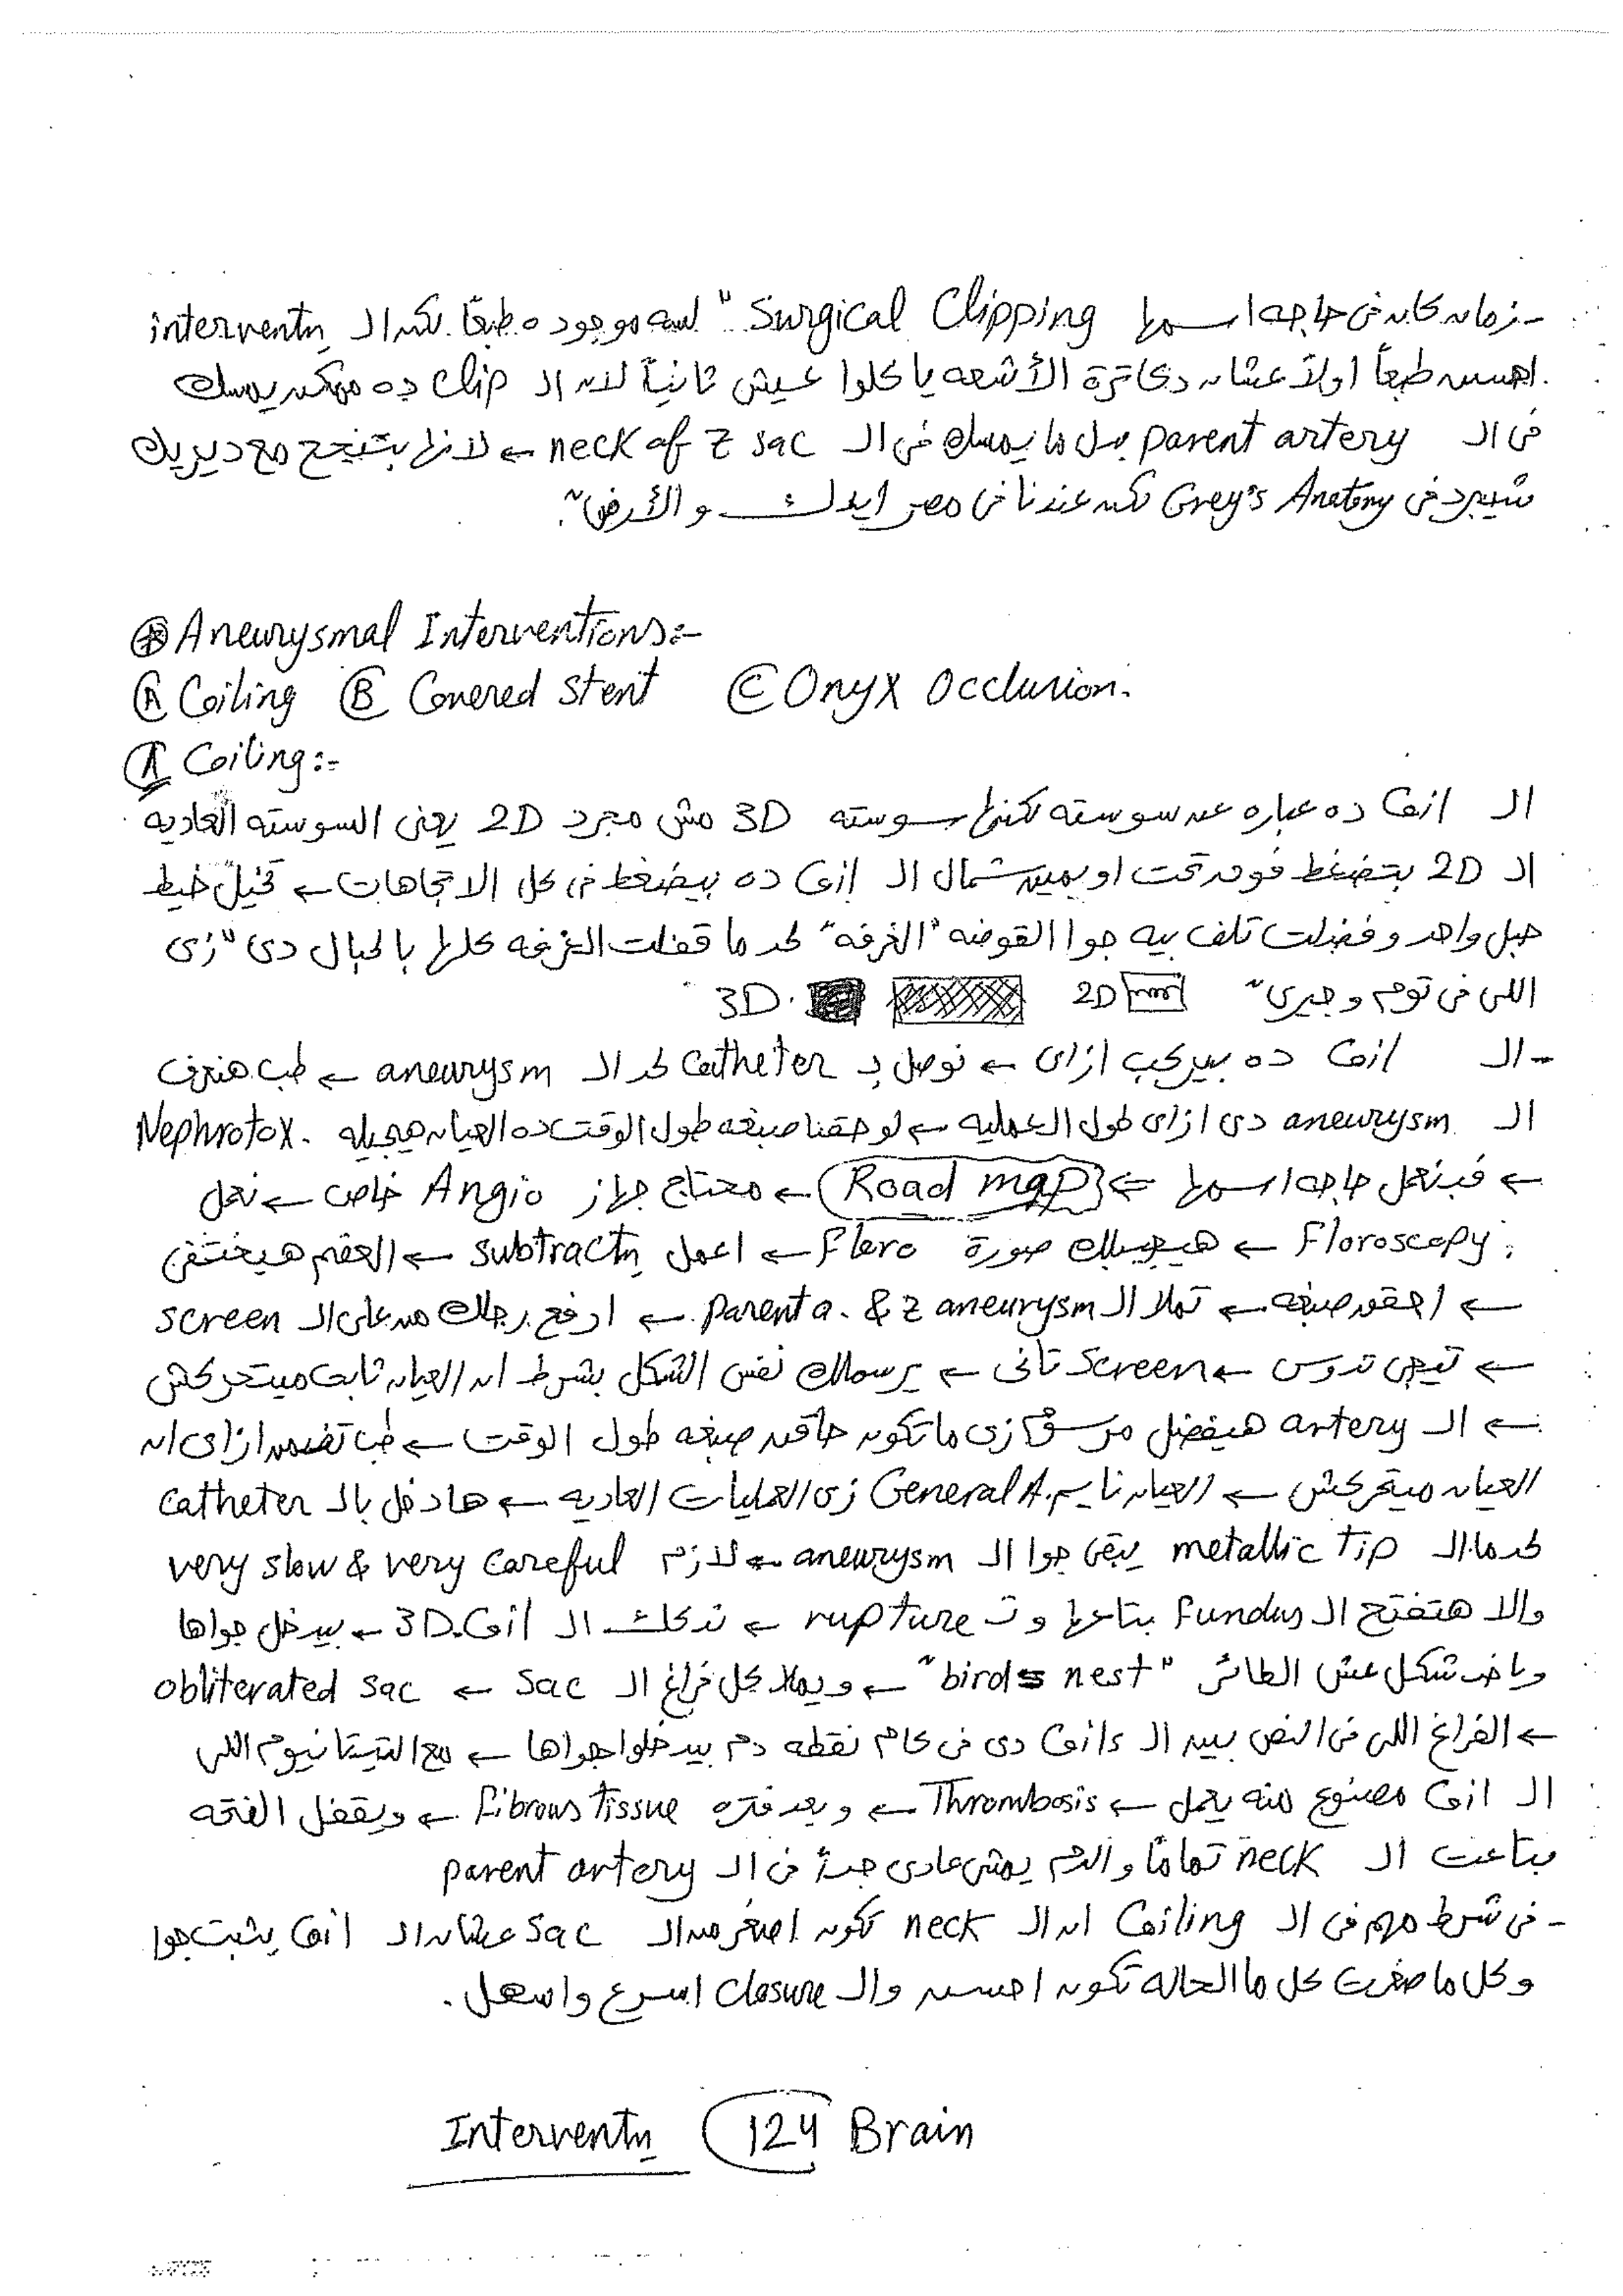 - زمان كان في حاجه اسمها Surgical Clipping "لسه موجوده طبعًا لكن الـ interventn
احسن طبعاً اولاً عشان دكاترة الأشعه ياكلوا عيش ثانياً لان الـ Clip ده ممكن يمسك
في الـ parent artery بدل ما يمسك في الـ neck of z sac ← لانها بتنجح مع ديريك
شيبرد في Grey's Anatomy لكن عندنا في مصر ايدك والأرض".
⊛ Aneurysmal Interventions:-
Ⓐ Coiling Ⓑ Covered Stent Ⓒ Onyx Occlusion.
Ⓐ Coiling:-
الـ Coil ده عباره عن سوسته لكنها سوسته 3D مش مجرد 2D يعني السوسته العاديه
الـ 2D بتضغط فوق تحت او يمين شمال الـ Coil ده بيضغط في كل الاتجاهات ← تخيل خيط
حبل واحد وفضلت تلف بيه جوا القوضه "الغرفه" لحد ما قفلت الغرفه كلها بالحبال دي "زي
اللي في توم وجيري" 2D 3D.
- الـ Coil ده بيركب ازاى ← نوصل بـ Catheter لحد الـ aneurysm ← طب هنعرف
الـ aneurysm دي ازاى طول العمليه ← لو حقنا صبغه طول الوقت ده العيان هيجيله Nephrotox.
← فبنعمل حاجه اسمها ⇐ Road map ← محتاج جهاز Angio خاص ← نعمل
Floroscopy ← هيجيبلك صورة Floro ← اعمل subtractn ← العضم هيختفي
← احقن صبغه ← تملا الـ parent a. & z aneurysm ← ارفع رجلك من على الـ screen
← تيجي تدوس screen تاني ← يرسملك نفس الشكل بشرط ان العيان ثابت ميتحركش
← الـ artery هيفضل مرسوم زي ما تكون حاقن صبغه طول الوقت ← طب تضمن ازاى ان
العيان ميتحركش ← العيان نايم General A. زي العمليات العاديه ← هادخل بالـ catheter
لحد ما الـ metallic tip يبقى جوا الـ aneurysm ← لازم very slow & very careful
والا هتفتح الـ Fundus بتاعها و تـ rupture ← تدكك الـ 3D Coil ← بيدخل جواها
وياخد شكل عش الطائر "birds nest" ← ويملا كل فراغ الـ sac ← obliterated sac
← الفراغ اللي في النص بين الـ Coils دي في كام نقطه دم بيدخلوا جواها ← مع التيتانيوم اللي
الـ Coil مصنوع منه يعمل ← Thrombosis ← وبعد فتره fibrous tissue ← ويقفل الفتحه
بتاعت الـ neck تمامًا والدم يمشي عادي جدًا في الـ parent artery
- في شرط مهم في الـ Coiling ان الـ neck تكون اصغر من الـ sac عشان الـ Coil يثبت جوا
وكل ما صغرت كل ما الحاله تكون احسن والـ closure اسرع واسهل.
Interventn 124 Brain